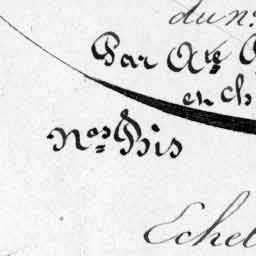 du n°
Par Xte
en ch
Nos Bis
Echel